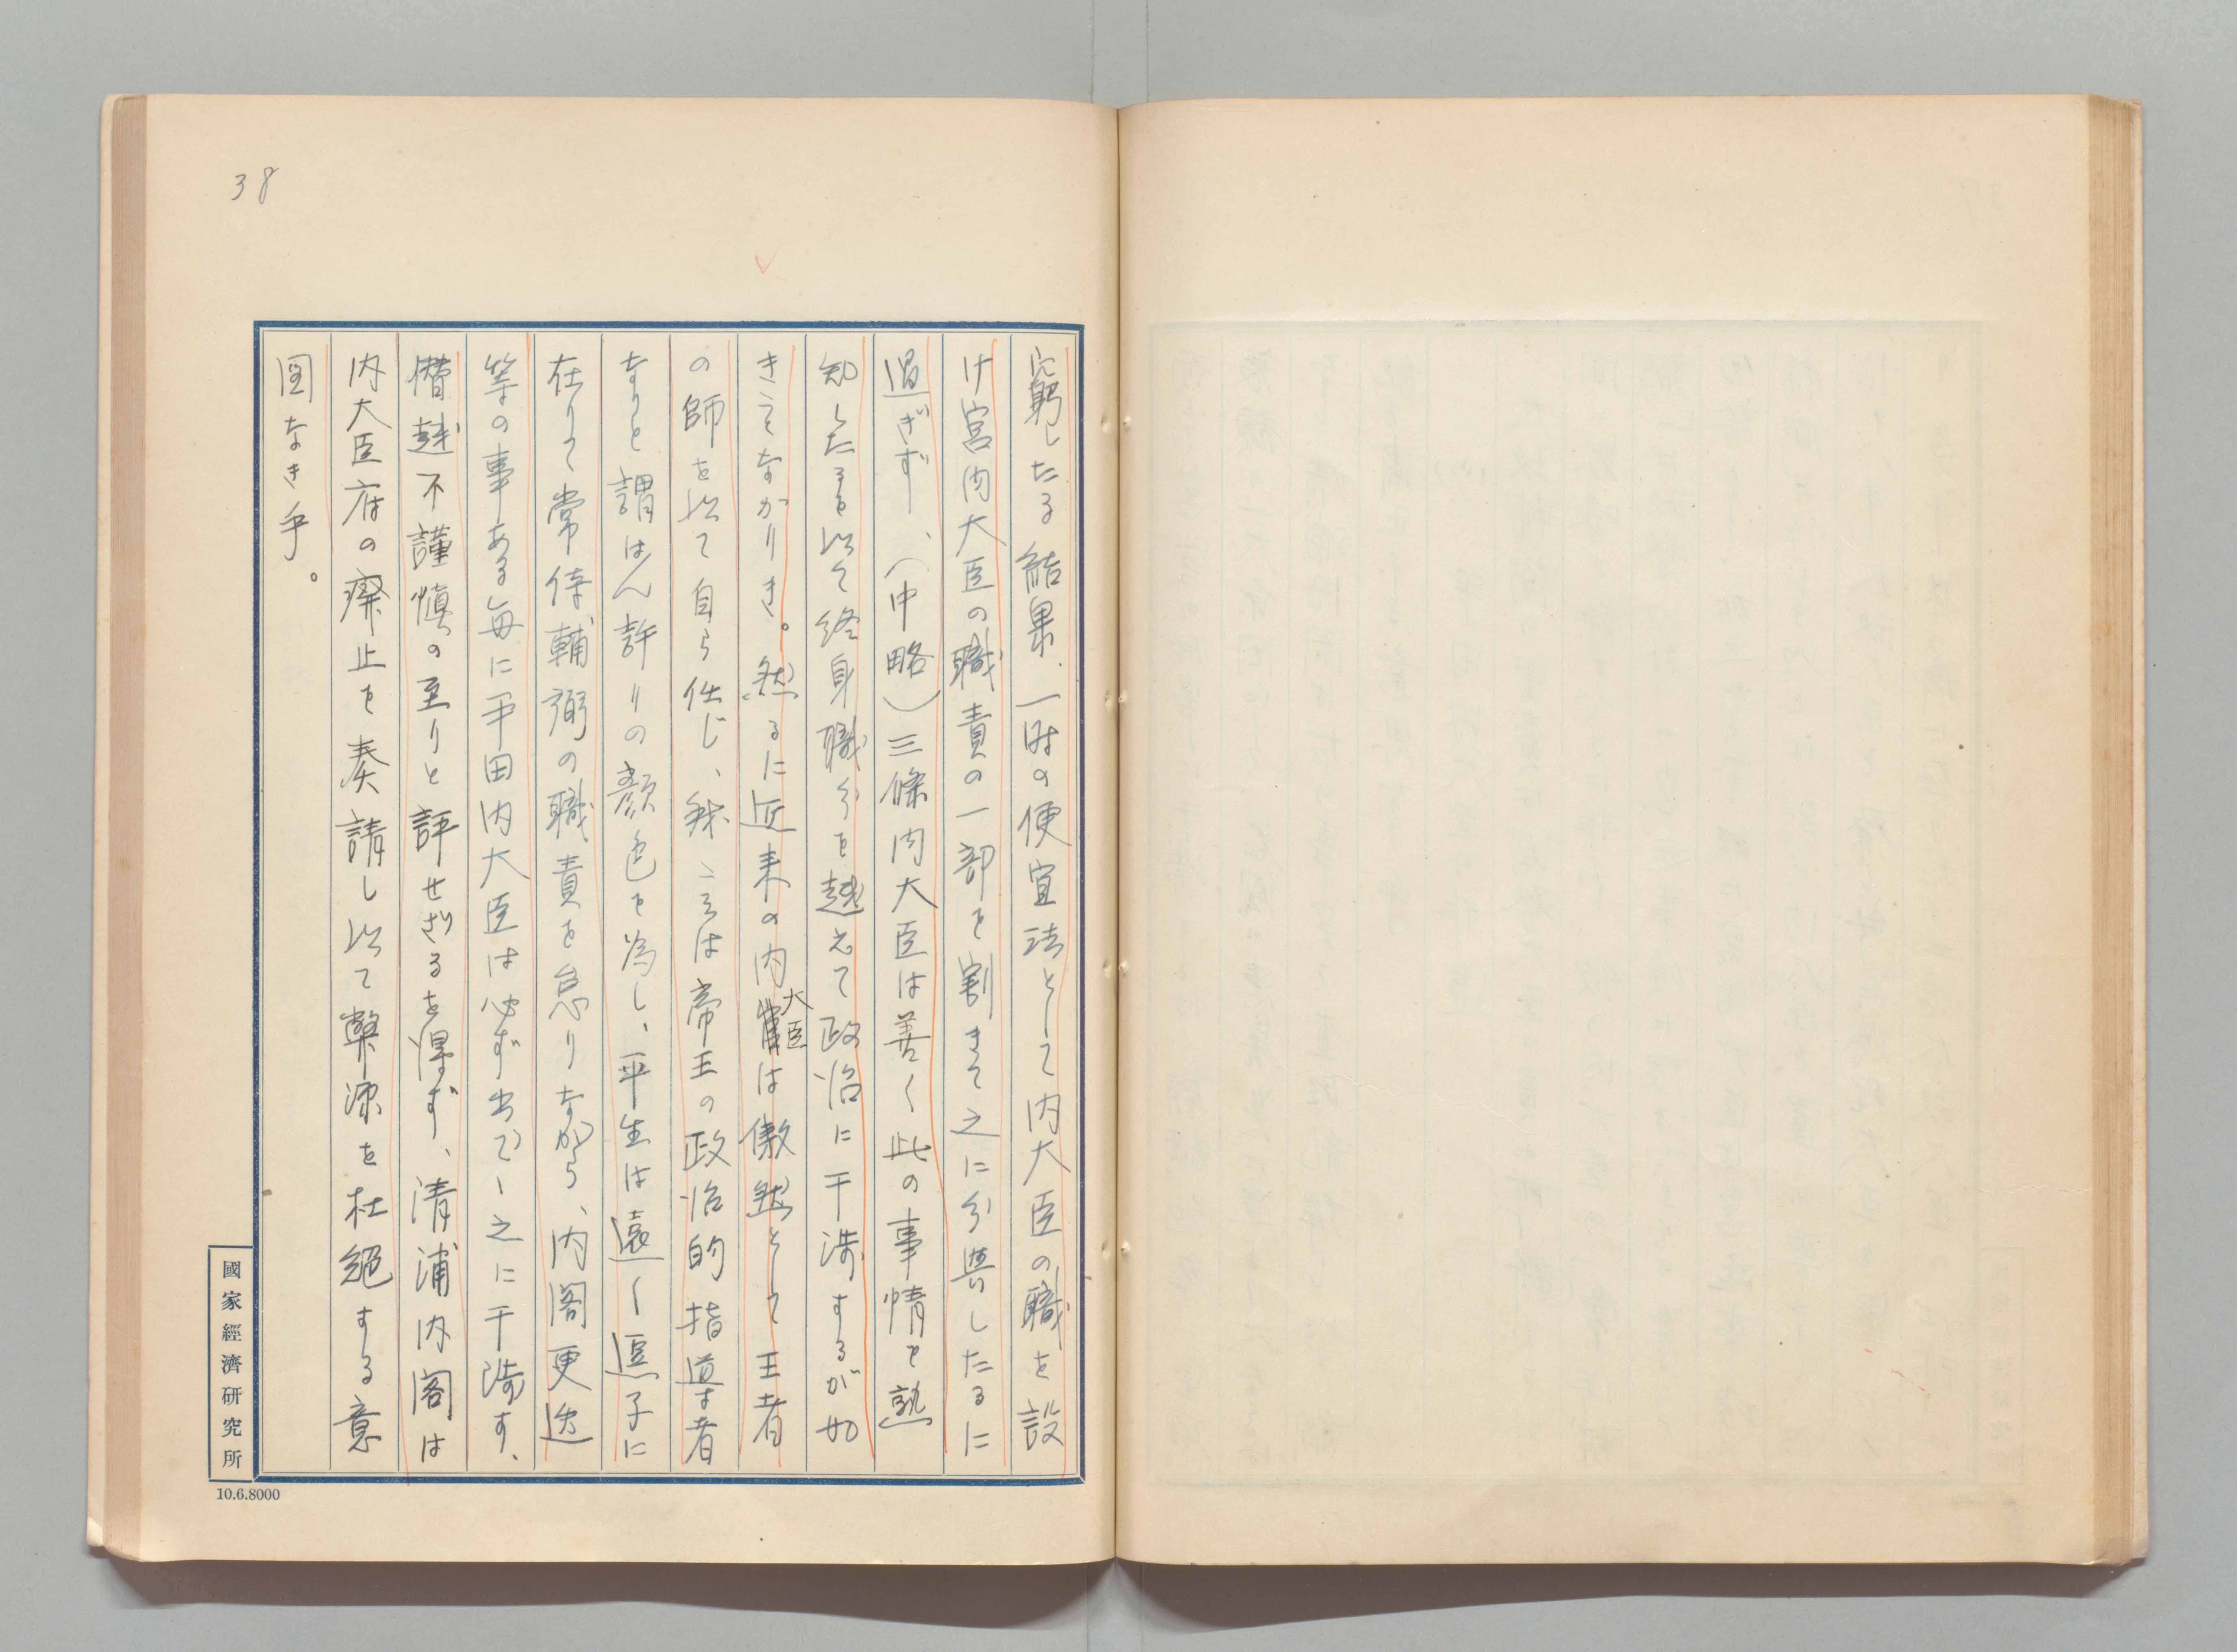 38
窮したる結果、一時の便宜法として内大臣の職を設
け宮内大臣の職責の一部を割きて之に分與したるに
過ぎず、（中略）三條内大臣は善く此の事情を熟
知したるを以て終身職分を越えて政治に干渉するが如
きことなかりき。然るに近来の内大臣は傲然として王者
の師を以て自ら任じ、我こそは帝王の政治的指導者
なりと謂はん許りの顔色を為し、平生は遠く逗子に
在りて常侍輔弼の職責を怠りながら、内閣更迭
等の事ある毎に平田内大臣は必ず出でゝ之に干渉す、
僭越不謹慎の至りと評せざるを得ず、清浦内閣は
内大臣府の癈止を奏請し以て弊源を杜絶する意
圖なき乎。
國家經濟硏究所
10.6.8000